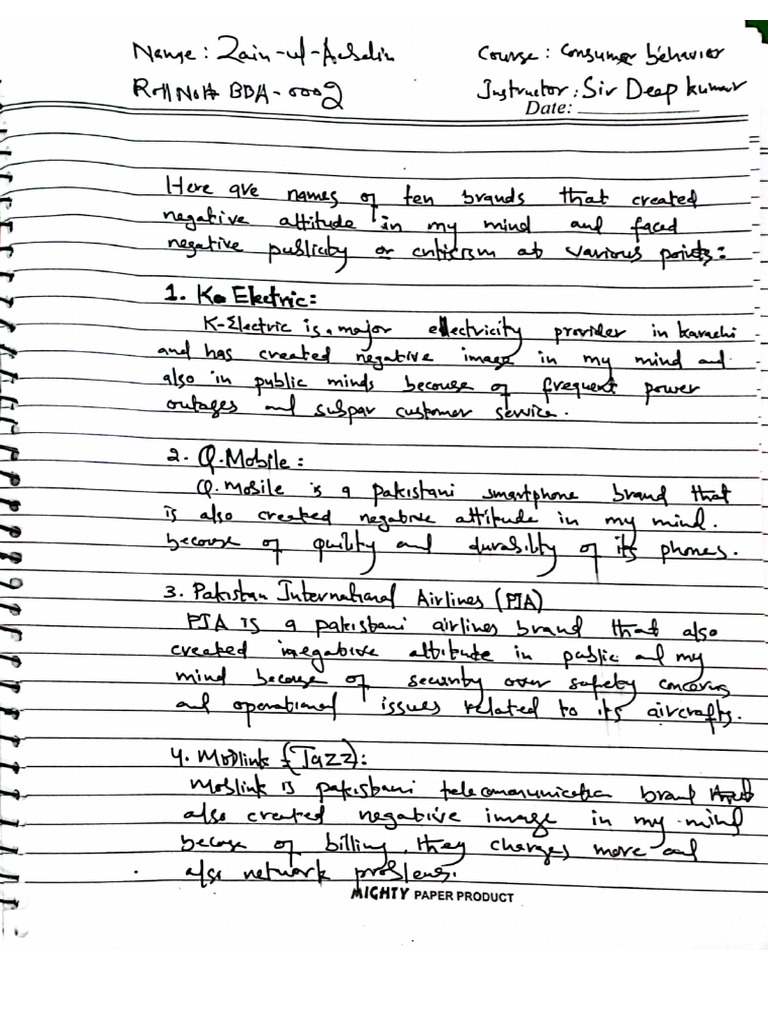 Name: Zain-ul-Aabedin Course: Consumer behavior
Roll No# BBA-0002 Instructor: Sir Deep kumar
Date:
Here are names of ten brands that created
negative attitude in my mind and faced
negative publicity or criticism at various points:
1. K Electric:
K-Electric is a major electricity provider in karachi
and has created negative image in my mind and
also in public minds because of frequent power
outages and subpar customer service.
2. Q.Mobile:
Q.mobile is a pakistani smartphone brand that
is also created negative attitude in my mind.
becouse of quilty and durability of its phones.
3. Pakistan International Airlines (PIA)
PIA is a pakistani airlines brand that also
created negative attitude in public and my
mind because of security over safety concerns
and operational issues related to its aircrafts.
4. Moblink (Jazz):
Moblink is pakistani telecommunication brand that
also created negative image in my mind
becase of billing, they charges more and
also network problems.
MIGHTY PAPER PRODUCT